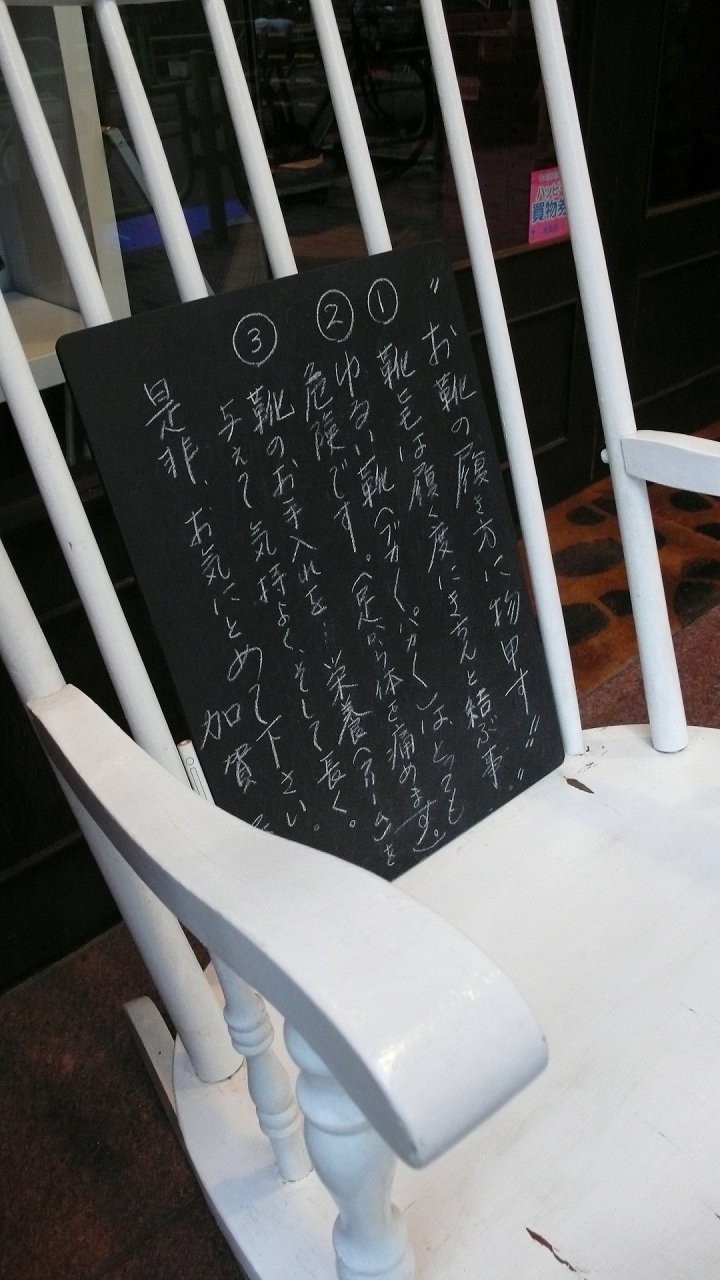 "お靴の履き方に物申す"
① 靴ヒモは履く度にきちんと結ぶ事。
② ゆるい靴(ブカ〱。パカ〱)はとっても
危険です。(足から体を痛めます。)
③ 靴のお手入れを… 栄養(クリーム)を
与えて気持よく、そして長く。
是非、お気にとめて下さい。
加賀
ハッピ
買物券